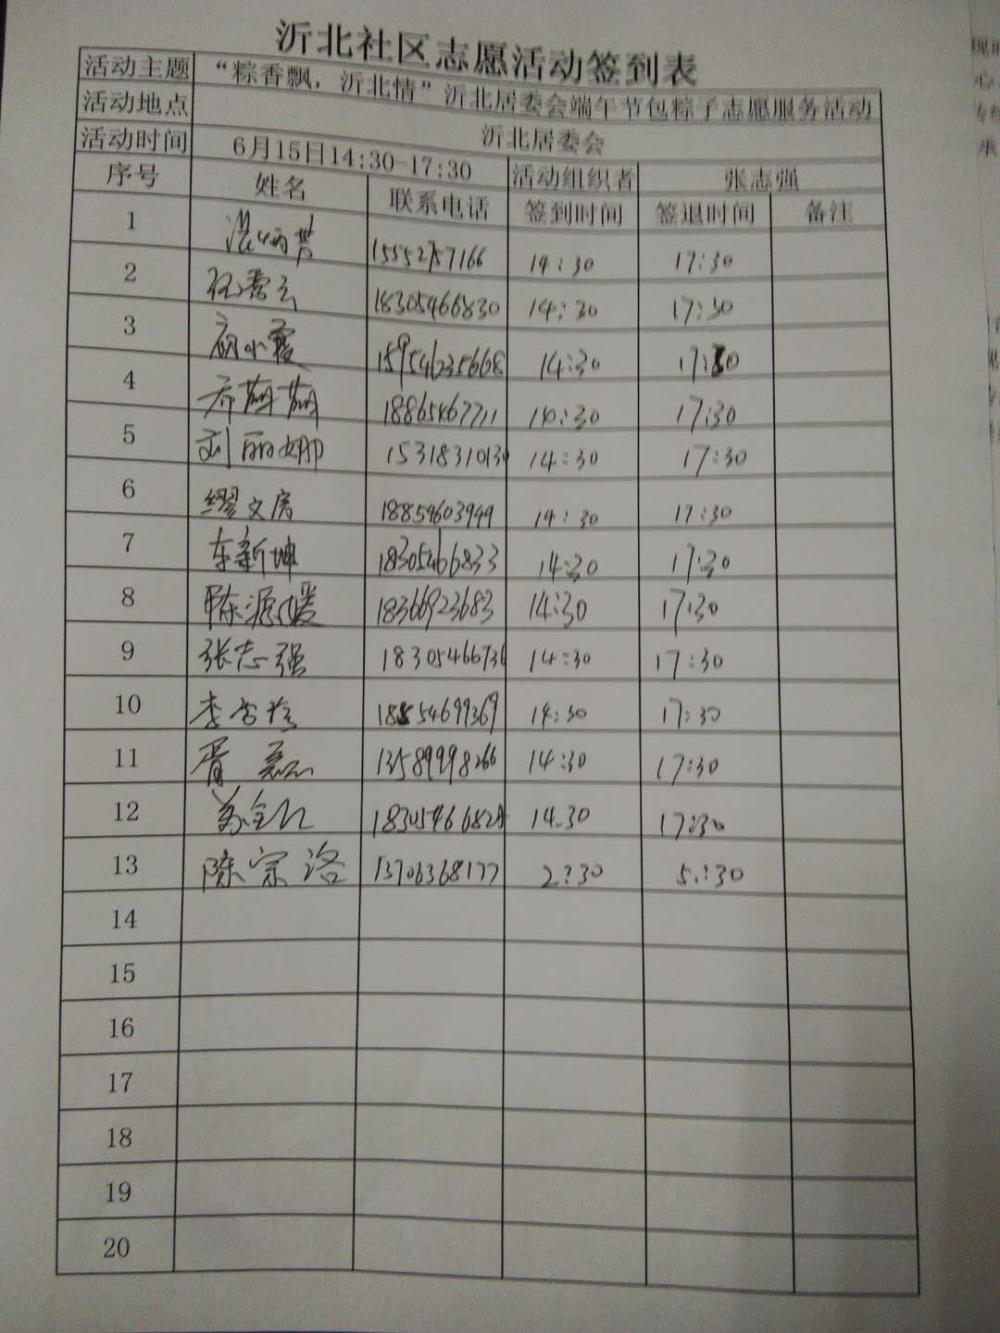 沂北社区志愿活动签到表
活动主题 “粽香飘，沂北情”沂北居委会端午节包粽子志愿服务活动
活动地点 沂北居委会
活动时间 6月15日14:30-17:30 活动组织者 张志强
序号 姓名 联系电话 签到时间 签退时间 备注
1 14:30 17:30
2 18305466830 14:30 17:30
3 159546235668 14:30 17:30
4 18865467711 14:30 17:30
5 刘丽娜 1531831013 14:30 17:30
6 缪文房 18854603949 14:30 17:30
7 车新坤 18305466833 14:30 17:30
8 陈源媛 18366923683 14:30 17:30
9 张志强 18305466736 14:30 17:30
10 18854699369 14:30 17:30
11 胥磊 13589998266 14:30 17:30
12 14.30 17:30
13 陈宗洛 13706368177 2:30 5:30
14
15
16
17
18
19
20